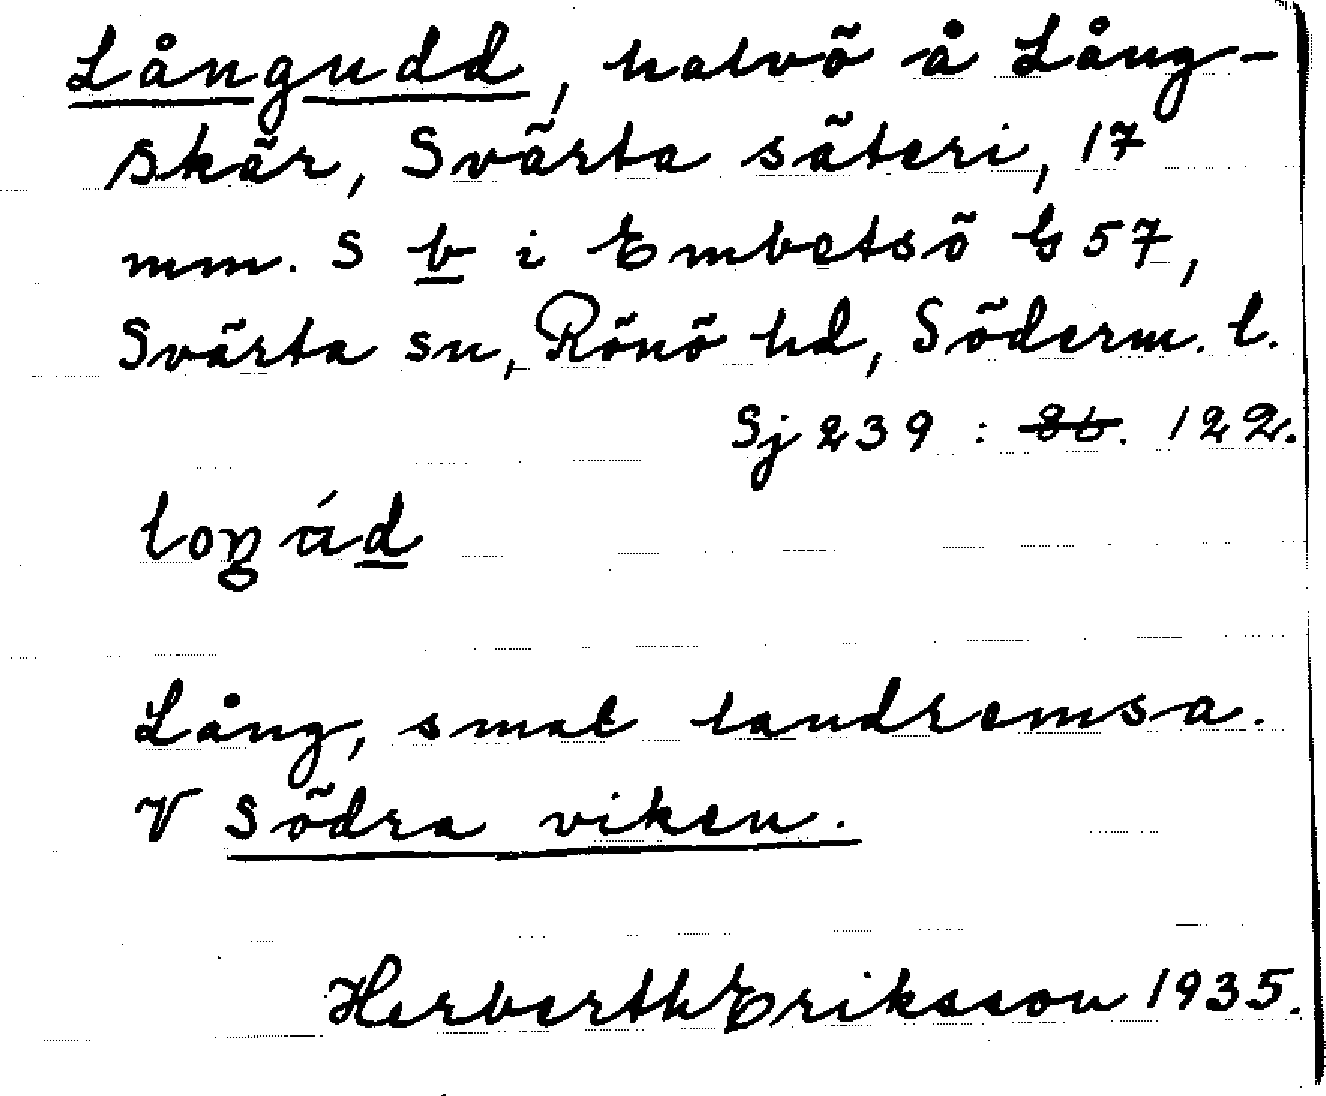 Långudd, halvö å Lång-
skär, Svärta säteri, 17
mm. S b i Embetsö G 57,
Svärta sn, Rönö hd, Söderm. l.
Sj 239 : 122.
Lång, smal landremsa.
V Södra viken.
Herberth Eriksson 1935.